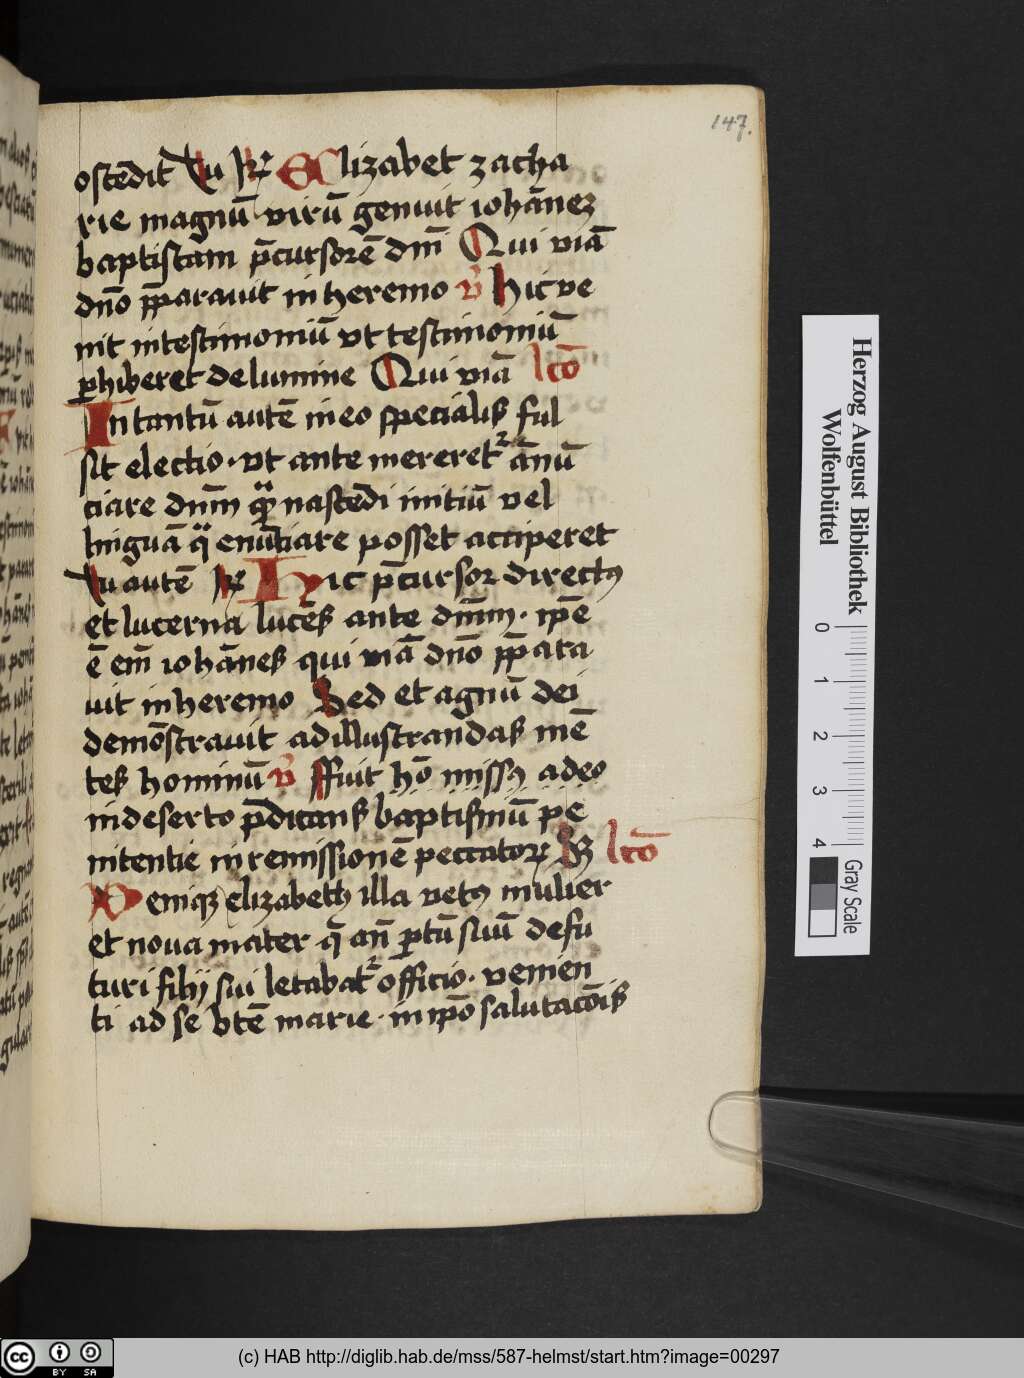 147.
ostēdit Tu R̸ Elizabet zacha
rie magnū virū genuit iohānez
baptistam p̄cursorē dm̄ Qui viā
dn̄o p̄parauit in heremo v̄ Hic ve
nit in testimoniū vt testimoniū
ꝑhiberet de lumine Qui viā lc̄o
In tantū autē in eo specialis ful
sit electio · vt ante mereretᷣ ānū
ciare dnm̄ nascēdi initiū vel
linguā enūciare posset acciperet
Tu autē R̸ Hic p̄cursor directꝰ
et lucerna lucēs ante dnm̄ · ip̄e
ē em̄ iohānes qui viā dn̄o p̄para
uit in heremo Sed et agnū dei
demōstrauit ad illustrandas mē
tes hominū v̄ ffuit hō missꝰ a deo
in deserto p̄dicans baptismū pē
nitentie in remissionē peccatoꝝ S lc̄o
Deniqꝫ elizabeth illa vetꝰ mulier
et noua mater q̄ an̄ ꝑtū suū de fu
turi filij sui letabatᷣ officio · venien
ti ad se btē marie · in ip̄o salutacōis
Herzog August Bibliothek
Wolfenbüttel
0 1 2 3 4
Gray Scale
cc BY SA
(c) HAB http://diglib.hab.de/mss/587-helmst/start.htm?image=00297